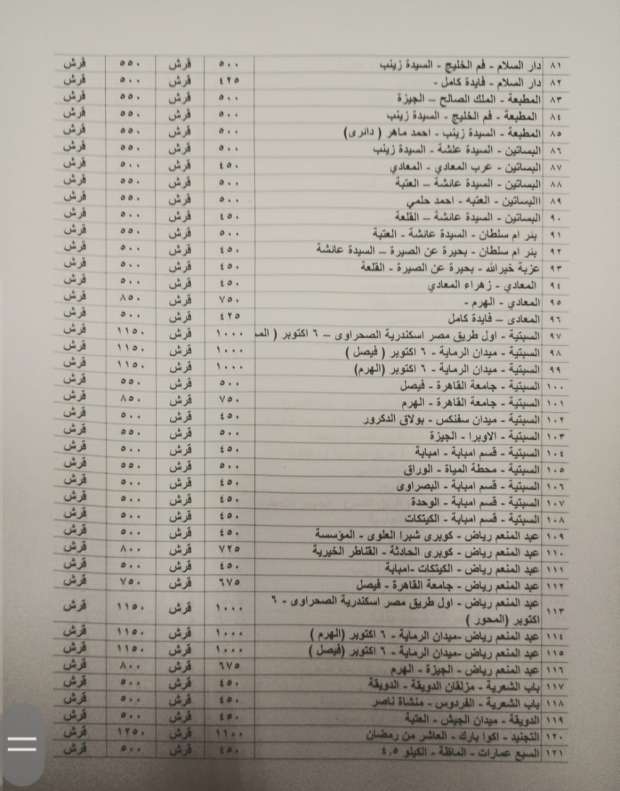 ٨١ دار السلام - فم الخليج - السيدة زينب ٥٠٠ قرش ٥٥٠ قرش
٨٢ دار السلام - فايدة كامل - ٤٢٥ قرش ٥٠٠ قرش
٨٣ المطبعة - الملك الصالح – الجيزة ٥٠٠ قرش ٥٥٠ قرش
٨٤ المطبعة - فم الخليج - السيدة زينب ٥٠٠ قرش ٥٥٠ قرش
٨٥ المطبعة - السيدة زينب - احمد ماهر ( دائرى) ٥٠٠ قرش ٥٥٠ قرش
٨٦ البساتين - السيدة عئشة - السيدة زينب ٥٠٠ قرش ٥٥٠ قرش
٨٧ البساتين - عرب المعادي - المعادي ٤٥٠ قرش ٥٠٠ قرش
٨٨ البساتين - السيدة عائشة – العتبة ٥٠٠ قرش ٥٥٠ قرش
٨٩ البساتين - العتبه - احمد حلمي ٥٠٠ قرش ٥٥٠ قرش
٩٠ البساتين - السيدة عائشة – القلعة ٤٥٠ قرش ٥٠٠ قرش
٩١ بئر ام سلطان - السيدة عائشة - العتبة ٥٠٠ قرش ٥٥٠ قرش
٩٢ بئر ام سلطان - بحيرة عن الصيرة – السيدة عائشة ٤٥٠ قرش ٥٠٠ قرش
٩٣ عزبة خيرالله - بحيرة عن الصيرة - القلعة ٤٥٠ قرش ٥٠٠ قرش
٩٤ المعادي - زهراء المعادي ٤٥٠ قرش ٥٠٠ قرش
٩٥ المعادي - الهرم - ٧٥٠ قرش ٨٥٠ قرش
٩٦ المعادى – فايدة كامل ٤٢٥ قرش ٥٠٠ قرش
٩٧ السبتية - اول طريق مصر اسكندرية الصحراوى – ٦ اكتوبر ( ١٠٠٠ قرش ١١٥٠ قرش
٩٨ السبتية - ميدان الرماية - ٦ اكتوبر ( فيصل ) ١٠٠٠ قرش ١١٥٠ قرش
٩٩ السبتية - ميدان الرماية - ٦ اكتوبر (الهرم) ١٠٠٠ قرش ١١٥٠ قرش
١٠٠ السبتية - جامعة القاهرة - فيصل ٥٠٠ قرش ٥٥٠ قرش
١٠١ السبتية - جامعة القاهرة - الهرم ٧٥٠ قرش ٨٥٠ قرش
١٠٢ السبتية - ميدان سفنكس - بولاق الدكرور ٤٥٠ قرش ٥٠٠ قرش
١٠٣ السبتية - الاوبرا - الجيزة ٥٠٠ قرش ٥٥٠ قرش
١٠٤ السبتية - قسم امبابة - امبابة ٤٥٠ قرش ٥٠٠ قرش
١٠٥ السبتية - محطة المياة - الوراق ٥٠٠ قرش ٥٥٠ قرش
١٠٦ السبتية - قسم امبابة - البصراوى ٤٥٠ قرش ٥٠٠ قرش
١٠٧ السبتية - قسم امبابة - الوحدة ٤٥٠ قرش ٥٠٠ قرش
١٠٨ السبتية - قسم امبابة - الكيتكات ٤٥٠ قرش ٥٠٠ قرش
١٠٩ عبد المنعم رياض - كوبرى شبرا العلوى - المؤسسة ٤٥٠ قرش ٥٠٠ قرش
١١٠ عبد المنعم رياض - كوبرى الحادثة - القناطر الخيرية ٧٢٥ قرش ٨٠٠ قرش
١١١ عبد المنعم رياض - الكيتكات -امبابة ٤٥٠ قرش ٥٠٠ قرش
١١٢ عبد المنعم رياض - جامعة القاهرة - فيصل ٦٧٥ قرش ٧٥٠ قرش
١١٣ عبد المنعم رياض - اول طريق مصر اسكندرية الصحراوى - ٦ ١٠٠٠ قرش ١١٥٠ قرش
اكتوبر (المحور )
١١٤ عبد المنعم رياض -ميدان الرماية - ٦ اكتوبر (الهرم ) ١٠٠٠ قرش ١١٥٠ قرش
١١٥ عبد المنعم رياض -ميدان الرماية - ٦ اكتوبر (فيصل ) ١٠٠٠ قرش ١١٥٠ قرش
١١٦ عبد المنعم رياض - الجيزة - الهرم ٦٧٥ قرش ٨٠٠ قرش
١١٧ باب الشعرية - مزلقان الدويقة - الدويقة ٤٥٠ قرش ٥٠٠ قرش
١١٨ باب الشعرية - الفردوس - منشاة ناصر ٤٥٠ قرش ٥٠٠ قرش
١١٩ الدويقة - ميدان الجيش - العتبة ٤٥٠ قرش ٥٠٠ قرش
١٢٠ التجنيد - اكوا بارك - العاشر من رمضان ١١٠٠ قرش ١٢٥٠ قرش
١٢١ السبع عمارات - الماظة - الكيلو ٤,٥ ٤٥٠ قرش ٥٠٠ قرش